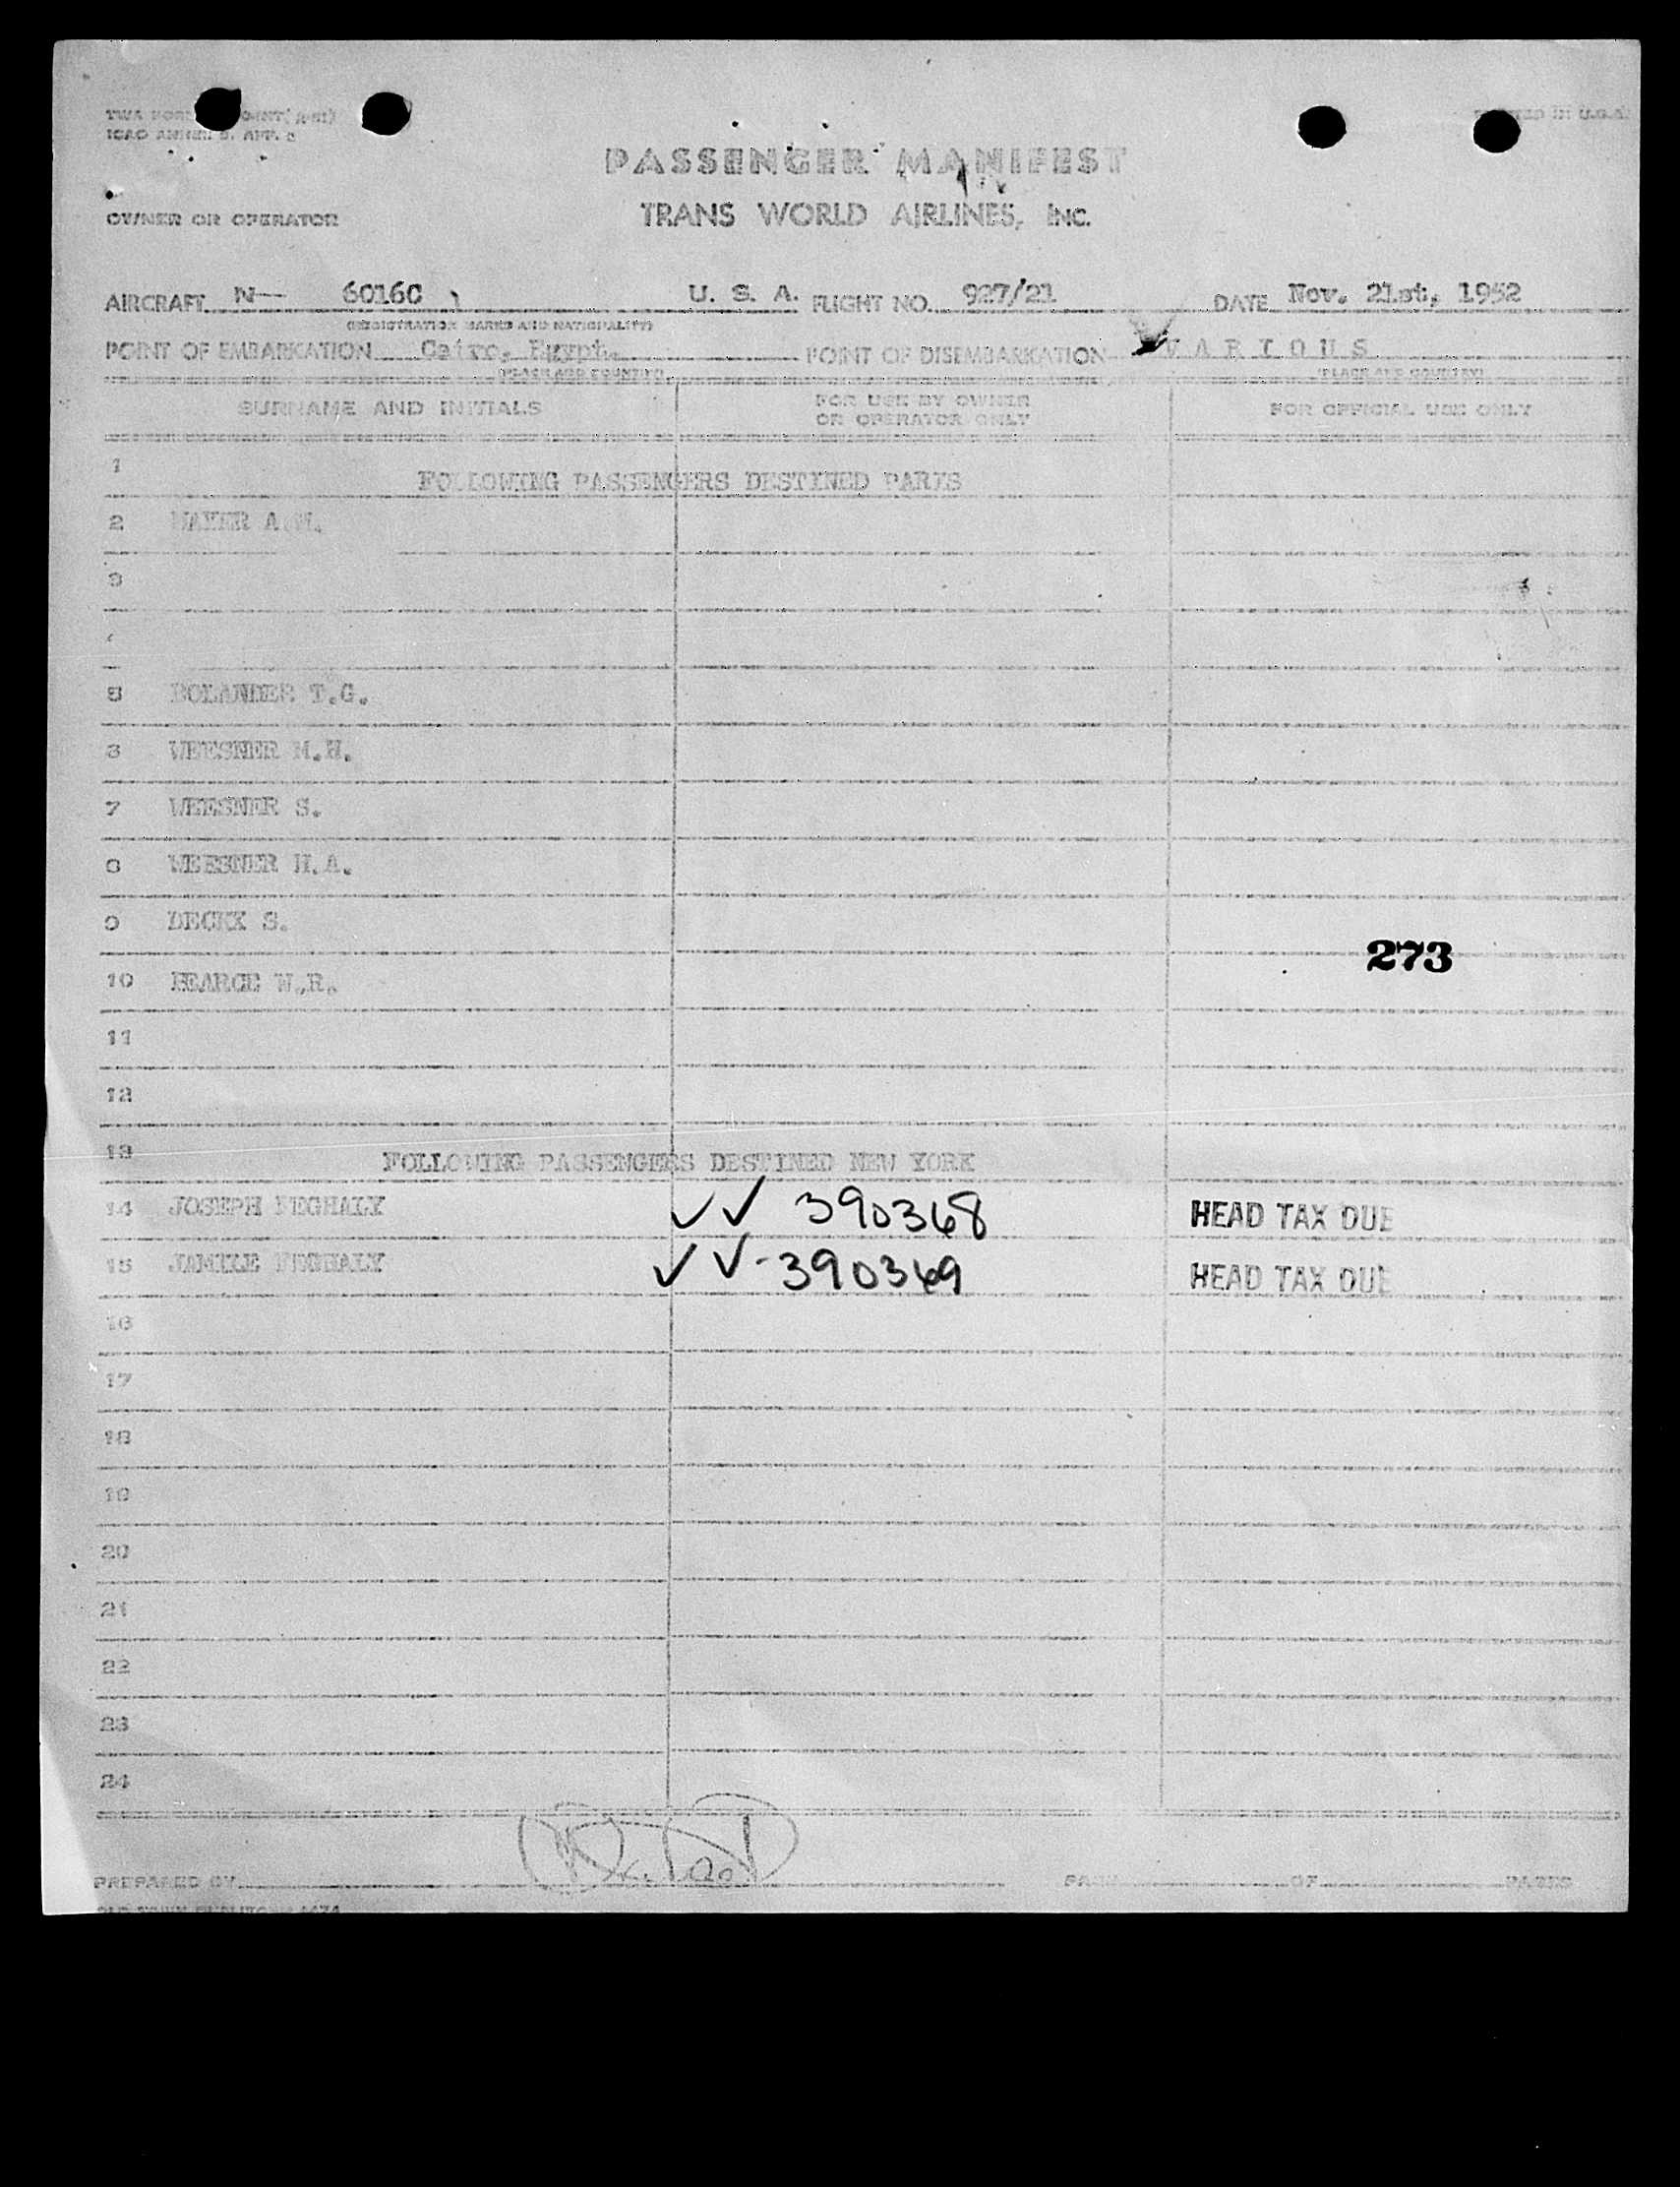 ICAO ANNEX 9. APP. 2
PRINTED IN U.S.A.
PASSENGER MANIFEST
OWNER OR OPERATOR
TRANS WORLD AIRLINES, INC.
AIRCRAFT N- 6016C U. S. A. FLIGHT NO. 927/21 DATE Nov. 21st, 1952
(REGISTRATION MARKS AND NATIONALITY)
POINT OF EMBARKATION Cairo, Egypt. POINT OF DISEMBARKATION VARIOUS
(PLACE AND COUNTRY) (PLACE AND COUNTRY)
SURNAME AND INITIALS FOR USE BY OWNER OR OPERATOR ONLY FOR OFFICIAL USE ONLY
1 FOLLOWING PASSENGERS DESTINED PARIS
2 A.
3
5 BOLANDER T.G.
6 WEESNER M.H.
7 WEESNER S.
8 WEESNER H.A.
9 DECKX S.
273
10 PEARCE W.R.
11
12
13 FOLLOWING PASSENGERS DESTINED NEW YORK
14 JOSEPH FEGHALY ✓✓ 390368 HEAD TAX DUE
15 JAMILE FEGHALY ✓✓-390369 HEAD TAX DUE
16
17
18
19
20
21
22
23
24
PREPARED BY PAGE OF PAGES